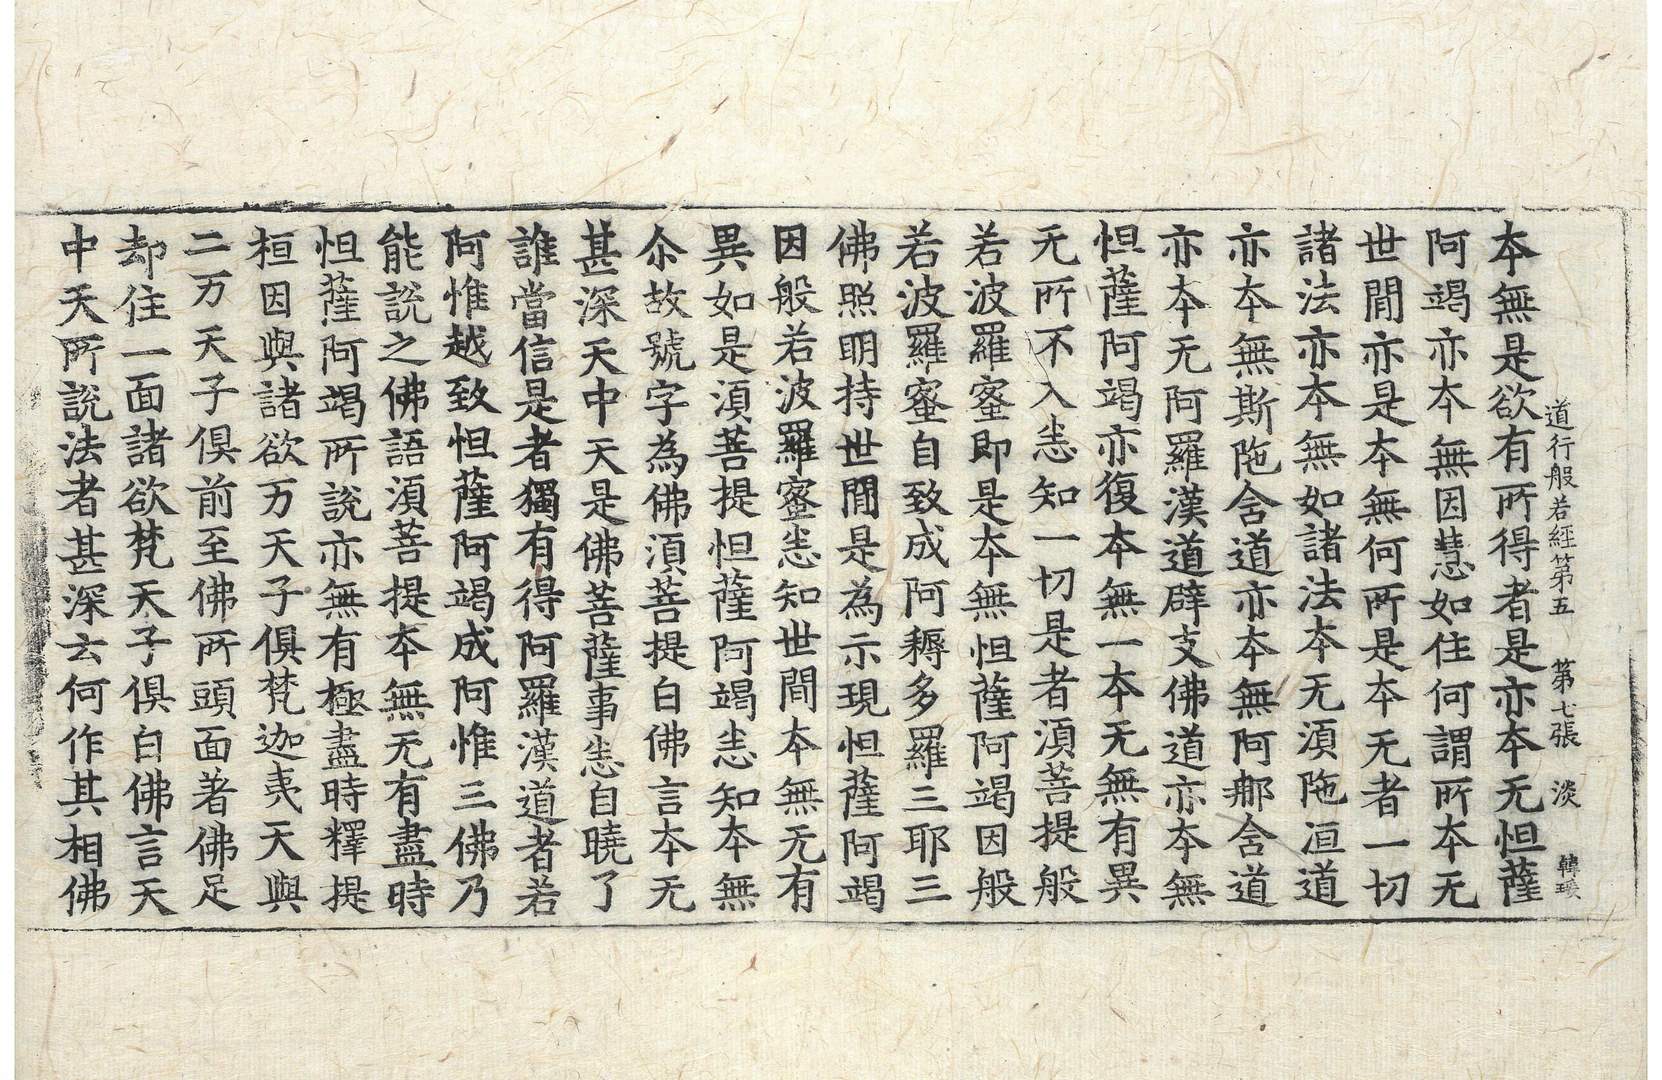 道行般若經第五 第七張 淡 韓璞
本無是欲有所得者是亦本无怛薩
阿竭亦本無因慧如住何謂所本无
世閒亦是本無何所是本无者一切
諸法亦本無如諸法本无湏陁洹道
亦本無斯陁含道亦本無阿那含道
亦本无阿羅漢道辟支佛道亦本無
怛薩阿竭亦復本無一本无無有異
无所不入悉知一切是者湏菩提般
若波羅蜜即是本無怛薩阿竭因般
若波羅蜜自致成阿耨多羅三耶三
佛照明持世閒是為示現怛薩阿竭
因般若波羅蜜悉知世間本無无有
異如是湏菩提怛薩阿竭悉知本無
尒故號字為佛湏菩提白佛言本无
甚深天中天是佛菩薩事悉自曉了
誰當信是者獨有得阿羅漢道者若
阿惟越致怛薩阿竭成阿惟三佛乃
能說之佛語湏菩提本無无有盡時
怛薩阿竭所說亦無有極盡時釋提
桓因與諸欲万天子俱梵迦夷天與
二万天子俱前至佛所頭面著佛足
却住一面諸欲梵天子俱白佛言天
中天所說法者甚深云何作其相佛